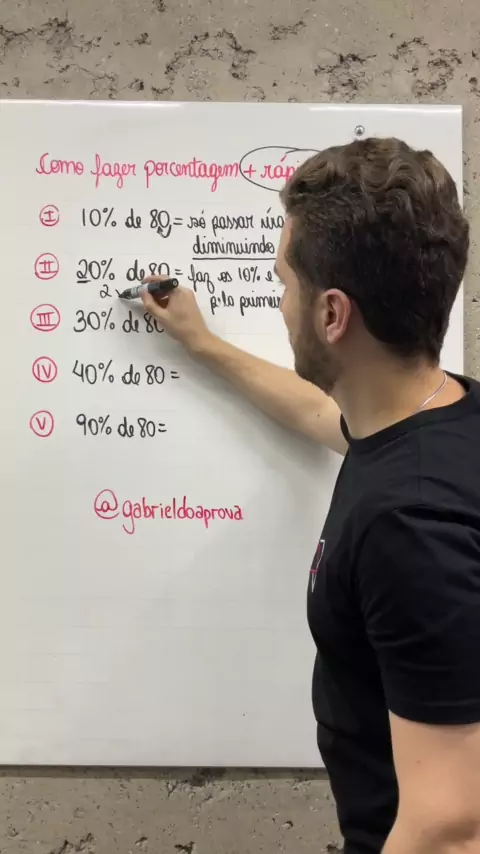 Como fazer porcentagem + rápi
I 10% de 80 = só passar
diminuindo
II 20% de 80 = faz os 10% e
2 x
pela primei
III 30% de 80
IV 40% de 80 =
V 90% de 80 =
@gabrieldoaprova